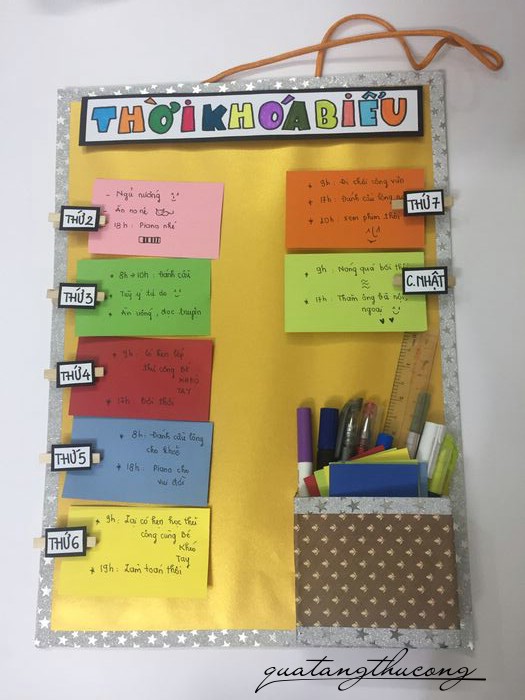 THỜI KHÓA BIỂU
THỨ 2
- Ngủ nướng
- Ăn no nê
18h: Piano nhé
THỨ 3
* 8h → 10h: Đánh cầu
* Tùy ý tự do
* Ăn uống, đọc truyện
THỨ 4
* 9h: Có hẹn lớp
thủ công Bé
Khéo
Tay
* 17h: Bơi thôi
THỨ 5
* 8h: Đánh cầu lông
cho khoẻ
* 18h: Piano cho
vui đời
THỨ 6
* 9h: Lại có hẹn học thủ
công cùng Bé
Khéo
Tay
* 19h: Làm toán thôi
THỨ 7
* 9h: Đi chơi công viên
* 17h: Đánh cầu lông
* 20h: xem phim thôi
C. NHẬT
* 9h: Nóng quá bơi
* 17h: Thăm ông bà nội,
ngoại
quatangthucong